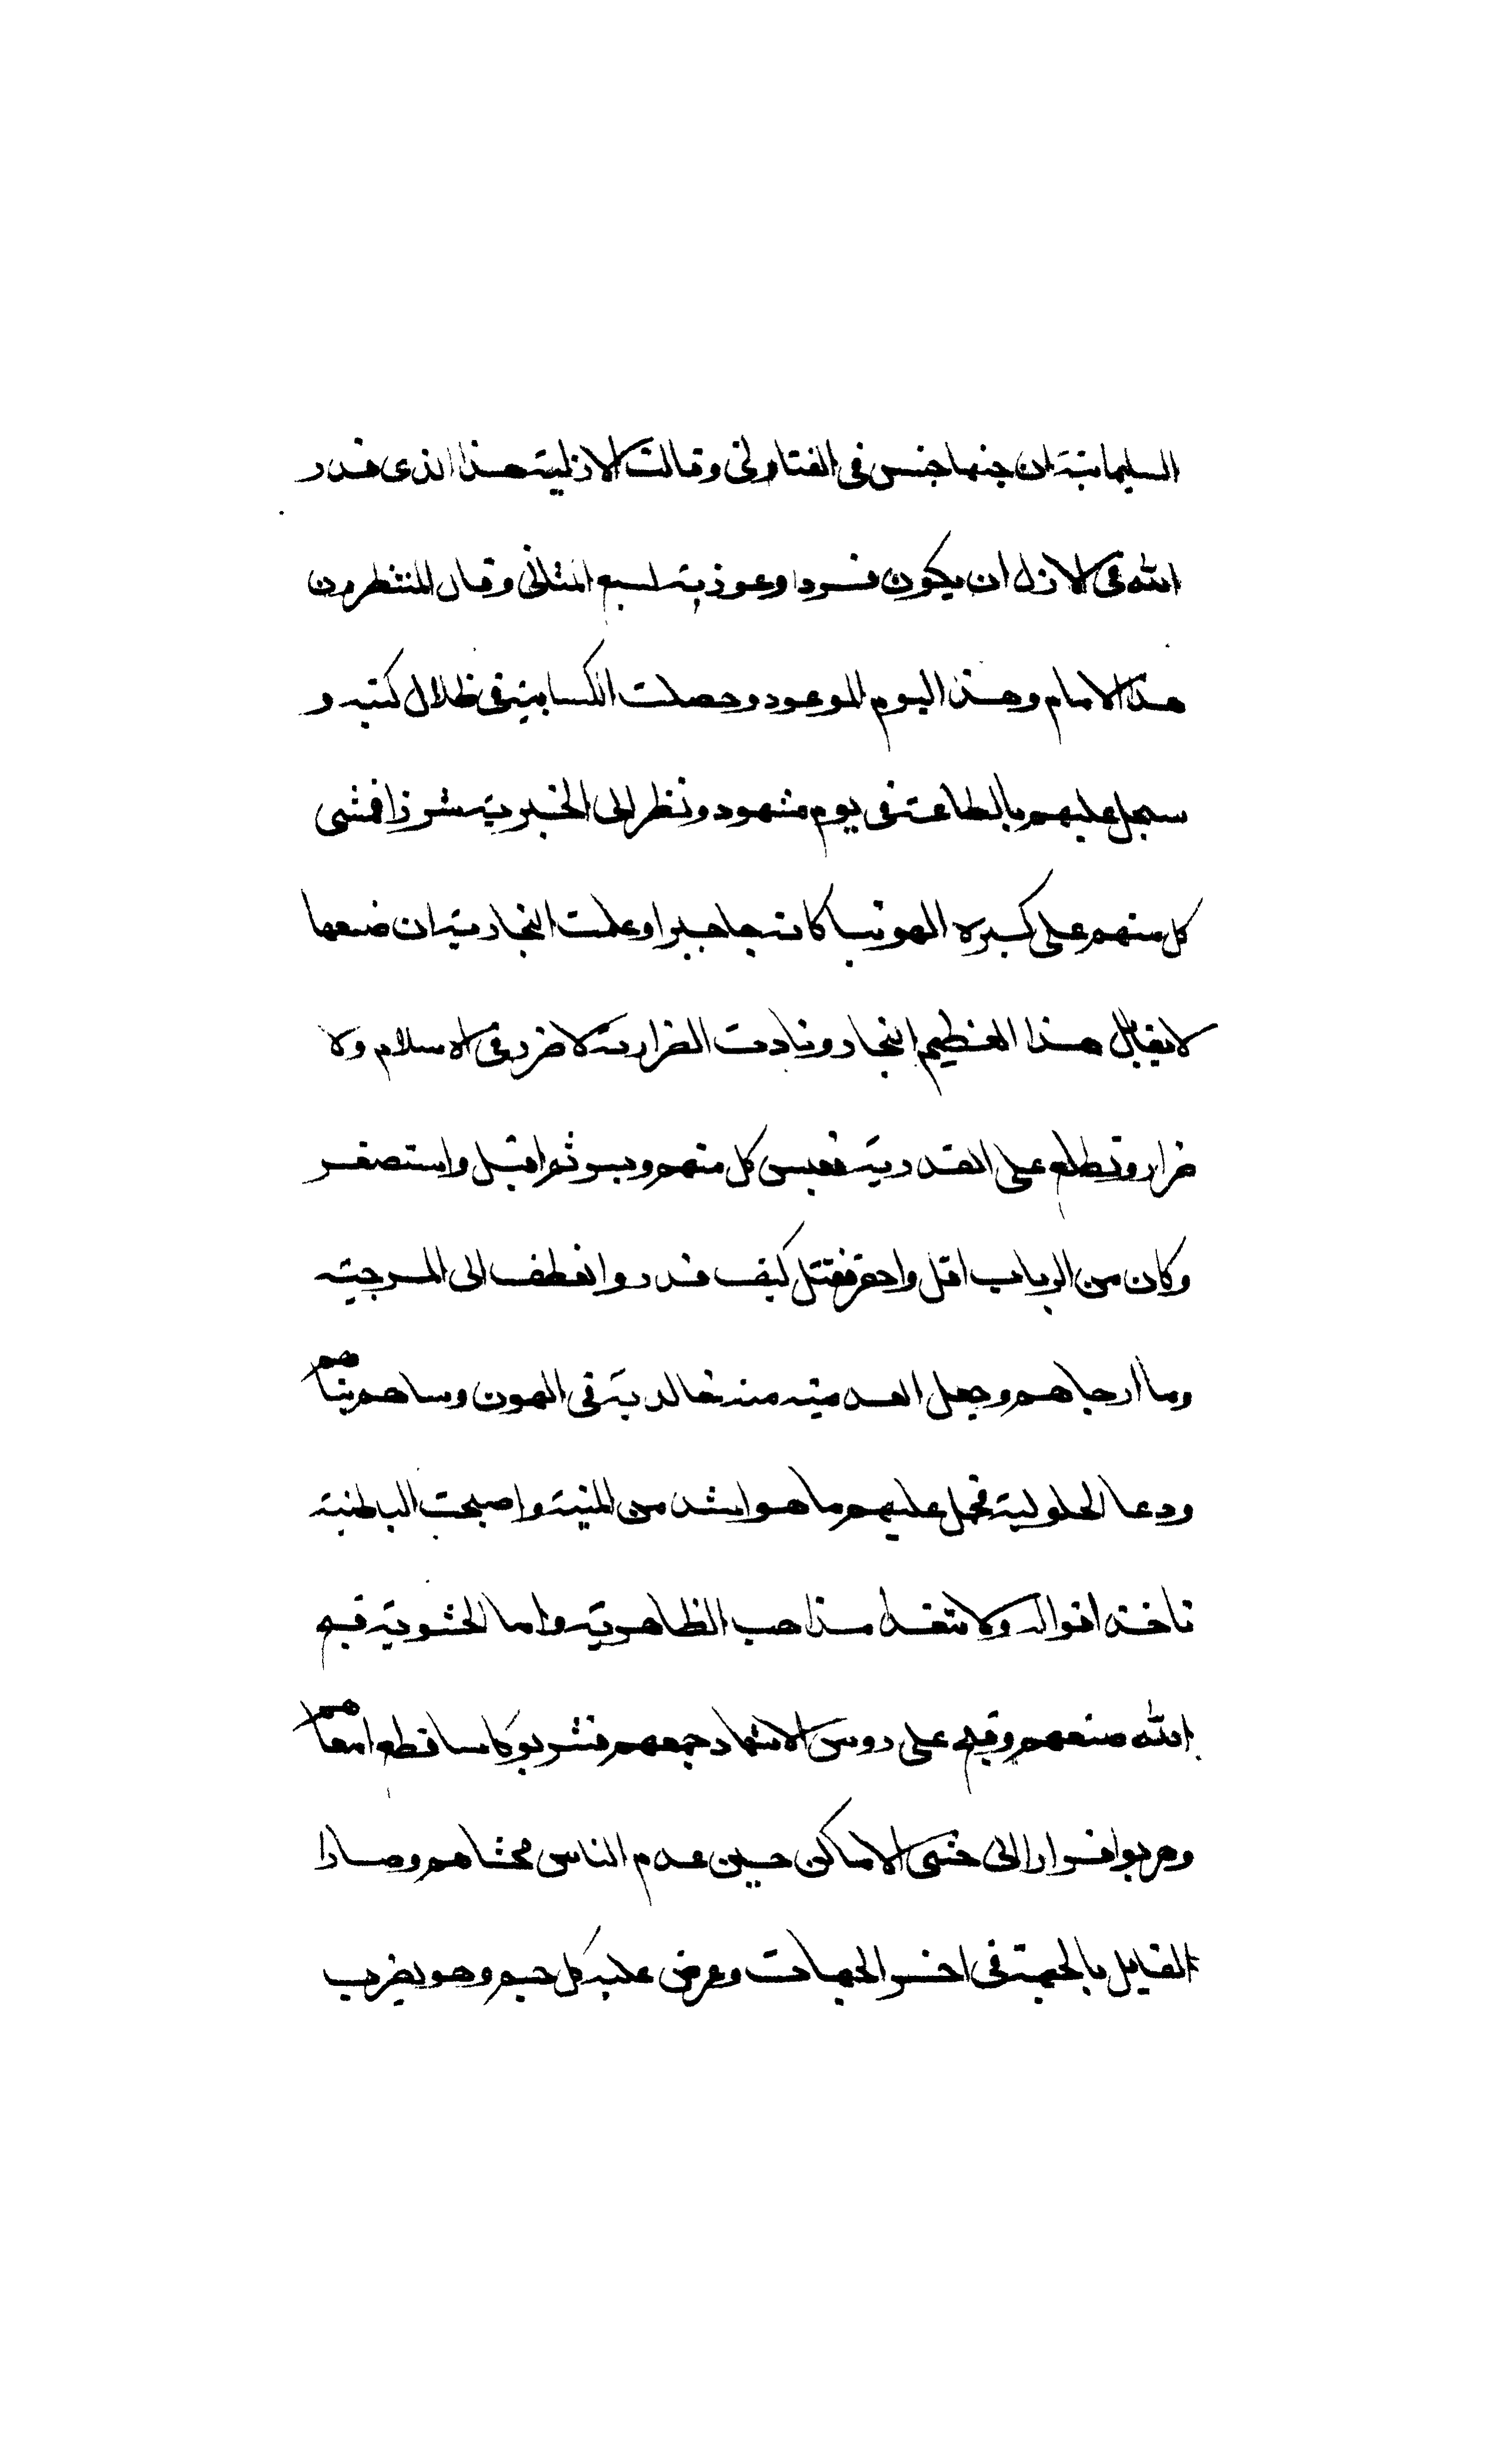 السليمانية ان جنها حبس في القناني وقالت الازلية هذا الذى قدر
الله فى الازل ان يكون فردا وعوذته بسبع المثاني وقال المنتظرون
هذا الامام وهذا اليوم الموعود وحصلت الكسابية فى ظلال كتبه و
سجل عليهم بالطاعة فى يوم مشهود ونظر الى الخبرية شزرا فمشى
كل منهم على كبره الهوينا كانه جا جبرا وعلمت النجارية ان صنعها
لا يقابل هذا العظيم النجار ونادت الضرارية لا ضرر فى الاسلام ولا
ضرار وتطلع على القدرية فعبس كل منهم وبسر ثم اقبل واستصغر
وكان من الرباب اقل واحقر فقتل كيف قدر وانعطف الى المرجية
وما ارجاهم وجعل العدمية منه خالدية فى الهون وساهم بناهم
ودعا الحلولية فحمل عليهم ما هو اشد من المنية واصبحت الباطنية
تاخذ اقواله ولا تتعدى مذاهب الظاهرية واما الحشوية قبح
الله صنعهم وقبح على روس الاشهاد جمعهم فشربو كاسا قطع امعاهم
وهربوا فرارا الى خشى الاماكن حين عدم الناس محشاهم وصارا
القايل بالجهة فى اخس الجهات وعرض عليه كل جسم وهو يضرب